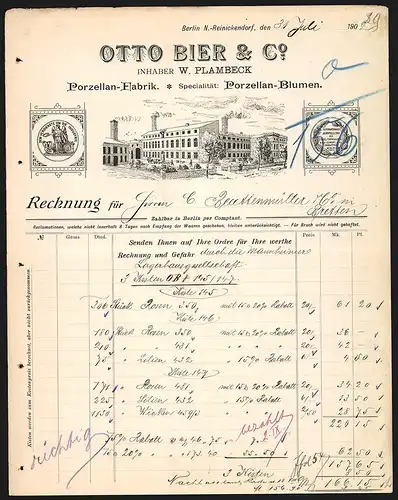 Berlin N.-Reinickendorf, den 31 Juli 190
OTTO BIER & Co
INHABER W. PLAMBECK
Porzellan-Fabrik. * Specialität: Porzellan-Blumen.
Rechnung für Herren C. Beutenmüller & Co. in
Bretten
Zahlbar in Berlin per Comptant.
Reclamationen, welche nicht innerhalb 8 Tagen nach Empfang der Waaren geschehen, bleiben unberücksichtigt. — Für Bruch wird nicht gehaftet.
Gross Dtzd. Preis Mk. Pf.
Senden Ihnen auf Ihre Ordre für Ihre werthe
Rechnung und Gefahr durch die Mannheimer
Lagerhausgesellschaft
3 Kisten OB # 145/147
Kiste 145
306 Stück Rosen 350 mit 15 20% Rabatt 20/ 61 20
Kiste 146
180 Stück Rosen 350 mit 15 20% Rabatt 20/ 36 —
210 20/ 42 —
75 Lilien 432 15% Rabatt 6/ 4 50
Kiste 147
171 Rosen 481 mit 15 20% Rabatt 20/ 34 20
225 Lilien 432 15% 6/ 13 50
1150 Winden 459/3 2/50 28 75
15% Rabatt
15 20% 55 50 62 50
bezahlt
richtig
3 Kisten
166 15
Kisten werden zum Kostenpreis berechnet, aber nicht zurückgenommen.